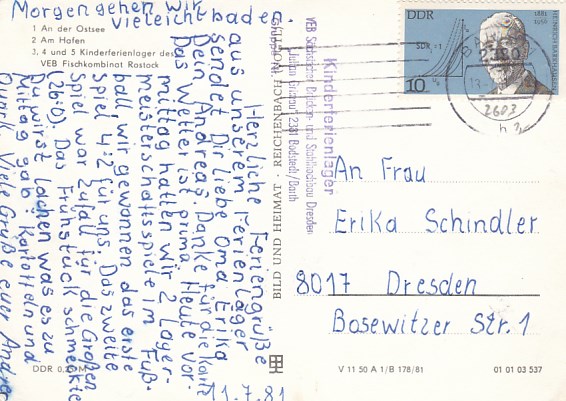 Morgen gehen wir
vieleicht baden.
1 An der Ostsee
2 Am Hafen
3, 4 und 5 Kinderferienlager des
VEB Fischkombinat Rostock
Herzliche Feriengrüße
aus unserem Ferienlager
sendet Dir liebe Oma Erika
Dein Andreas. Danke für die Karte
Das Wetter ist prima. Heute vor-
mittag hatten wir 2 Lager-
meisterschaftsspiele im Fuß-
ball, wir gewonnen das erste
Spiel 4:2 für uns. Das zweite
Spiel war Zufall für die Großen
(26:0). Das Frühstück schmeckte
Du wirst lachen was es zu
Mittag gab: Kartoffeln und
Quark. Viele Grüße euer Andreas
11.7.81
DDR 0,20 M
BILD UND HEIMAT · REICHENBACH (VOGTL)
Kinderferienlager
VEB Sächsischer Brücken- und Stahlhochbau Dresden
2381 Bodstedt/Barth
DDR
1881
1959
SDR = 1
10
HEINRICH BARKHAUSEN
2603
h
An Frau
Erika Schindler
8017 Dresden
Bosewitzer Str. 1
V 11 50 A 1/B 178/81
01 01 03 537